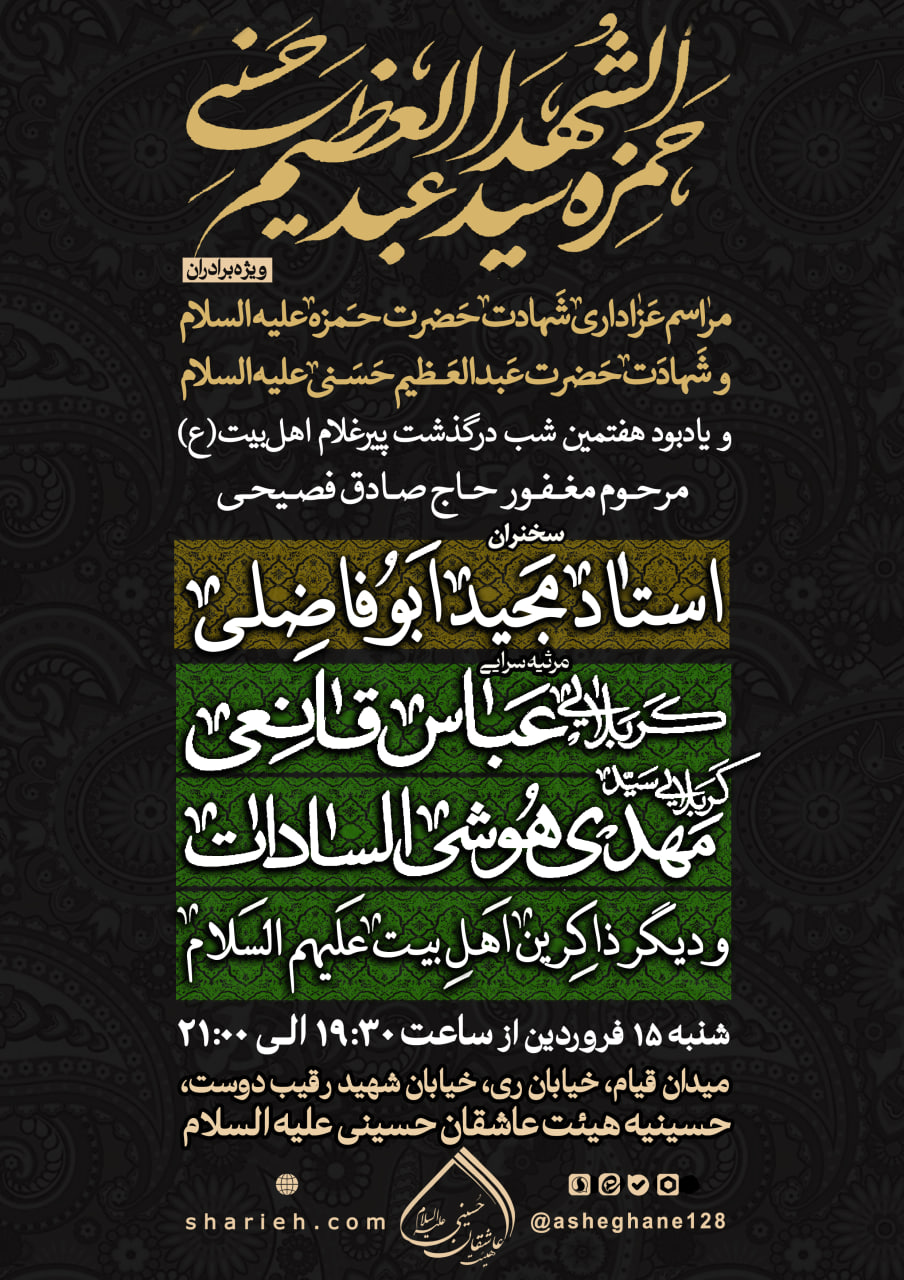 حمزه سید الشهدا
عبدالعظیم حسنی
ویژه برادران
مراسم عزاداری شهادت حضرت حمزه علیه السلام
و شهادت حضرت عبدالعظیم حسنی علیه السلام
و یادبود هفتمین شب درگذشت پیرغلام اهل بیت(ع)
مرحوم مغفور حاج صادق فصیحی
سخنران
استاد مجید ابوفاضلی
مرثیه سرایی
کربلایی عباس قانعی
کربلایی سید
مهدی هوشی السادات
و دیگر ذاکرین اهل بیت علیهم السلام
شنبه ۱۵ فروردین از ساعت ۱۹:۳۰ الی ۲۱:۰۰
میدان قیام، خیابان ری، خیابان شهید رقیب دوست،
حسینیه هیئت عاشقان حسینی علیه السلام
sharieh.com
هیئت عاشقان حسینی علیه السلام
@asheghane128